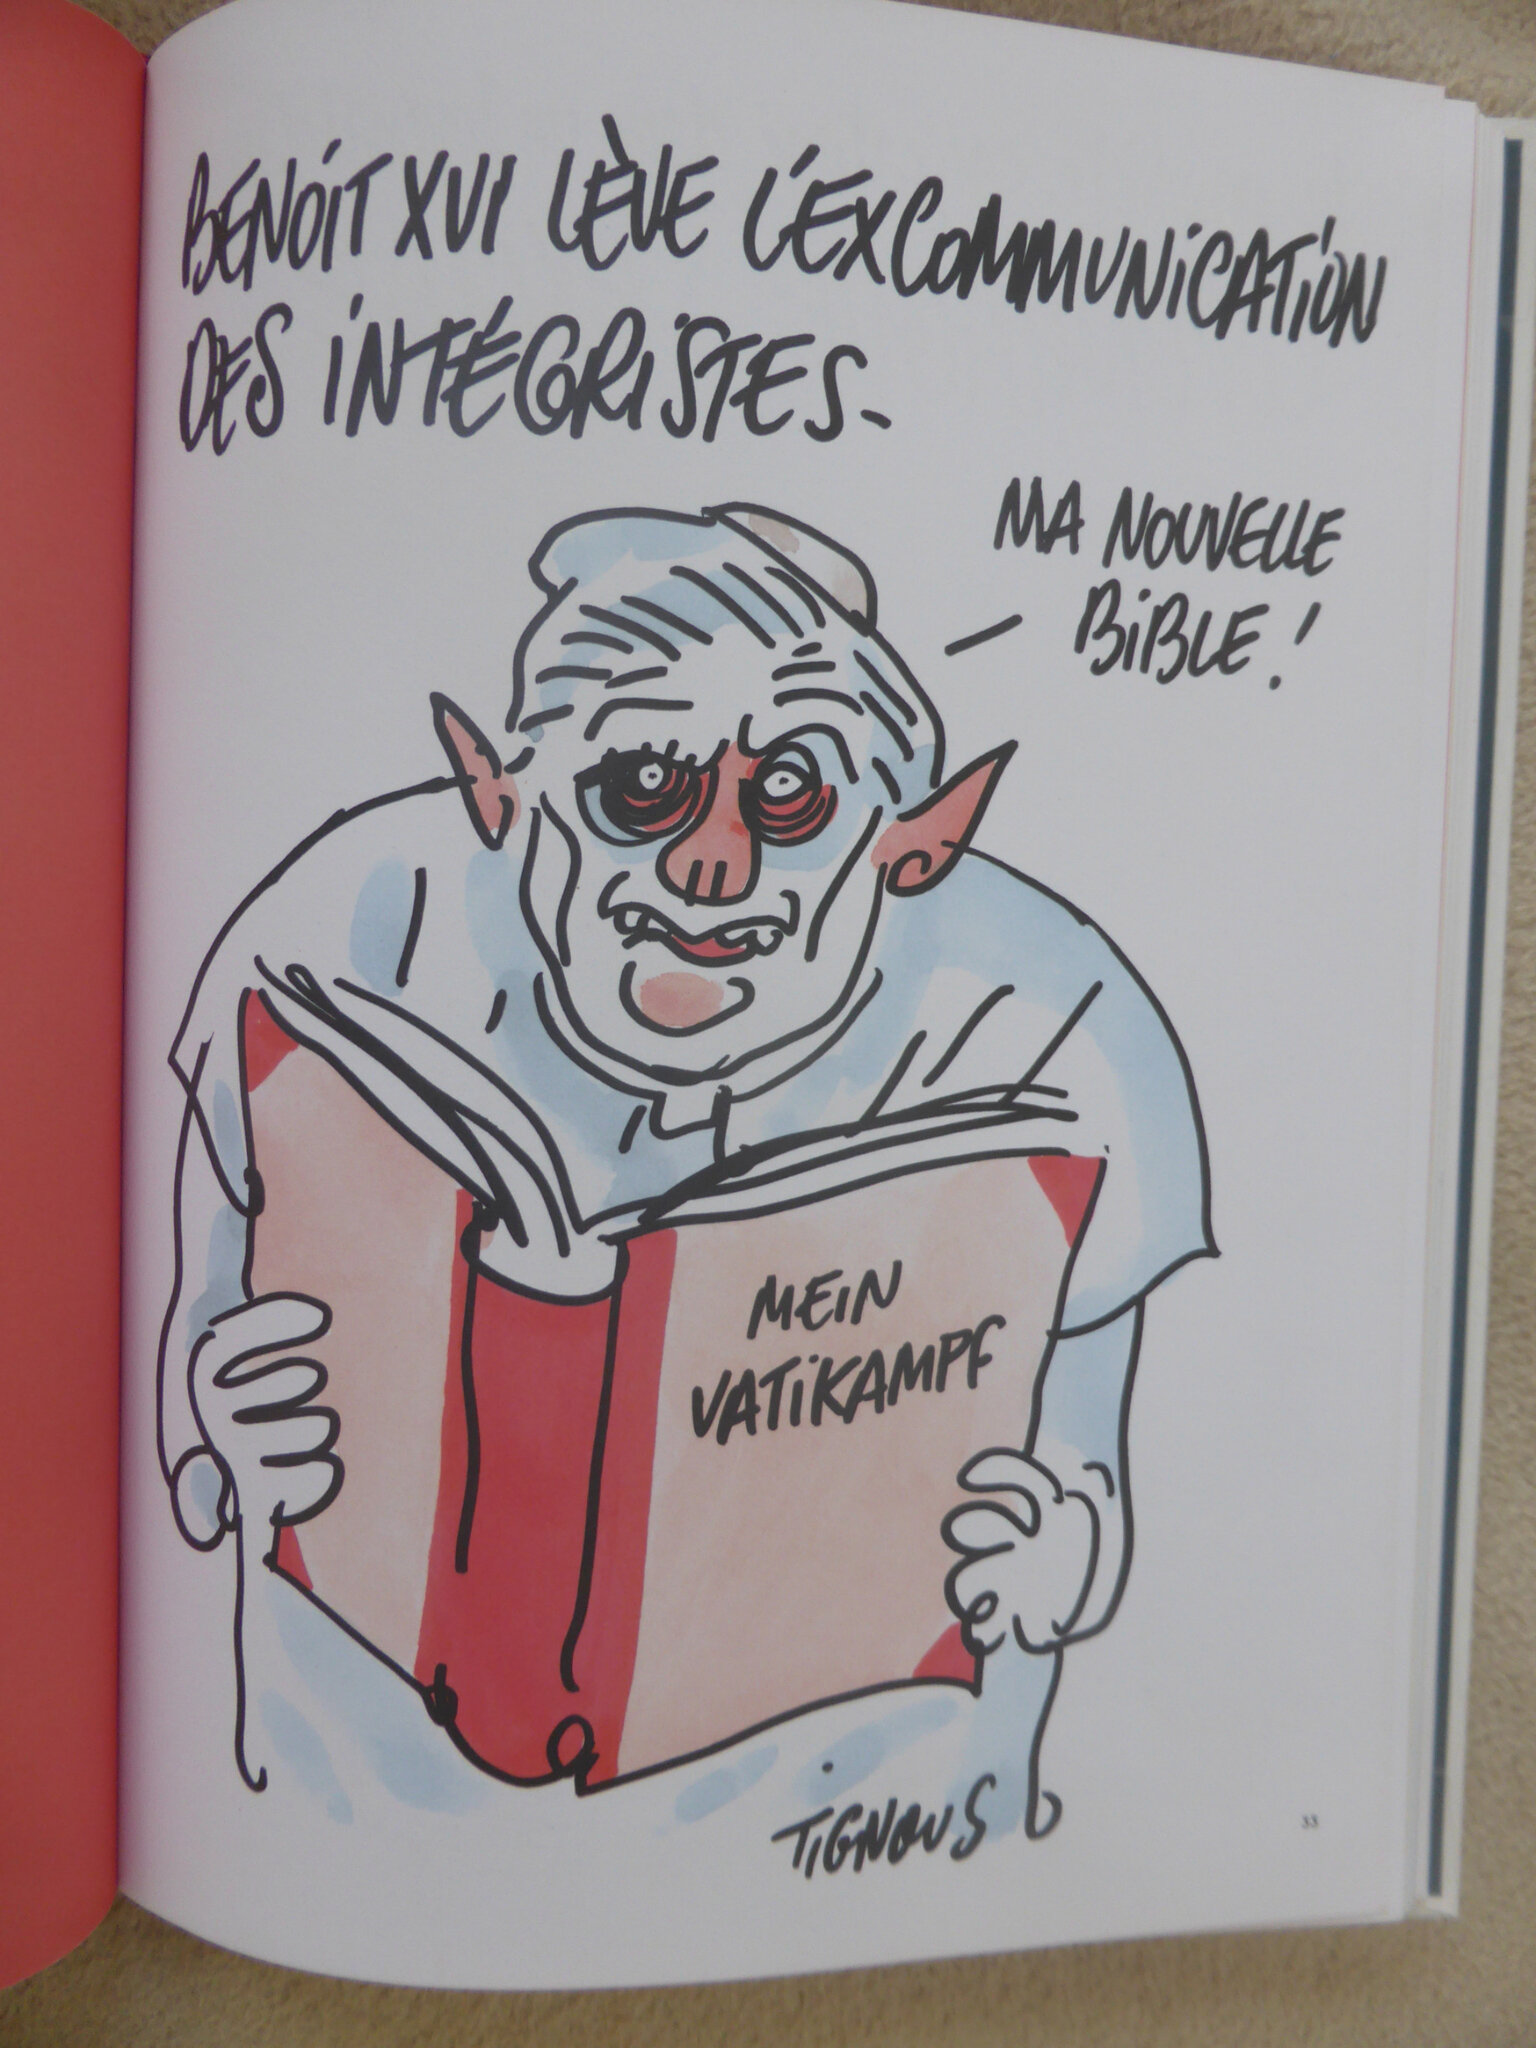 BENOÎT XVI LÈVE L'EXCOMMUNICATION
DES INTÉGRISTES-
MA NOUVELLE
BIBLE!
MEIN
VATIKAMPF
TIGNOUS
33